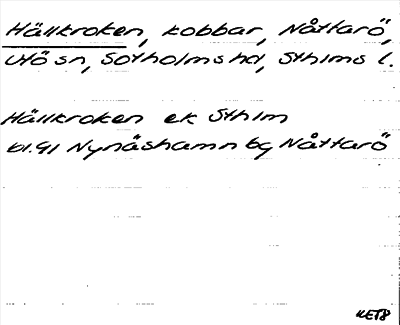 Hällkroken, kobbar, Nåttarö,
Utö sn, Sotholms hd, Sthlms l.
Hällkroken ek Sthlm
bl. 91 Nynäshamn bg Nåttarö